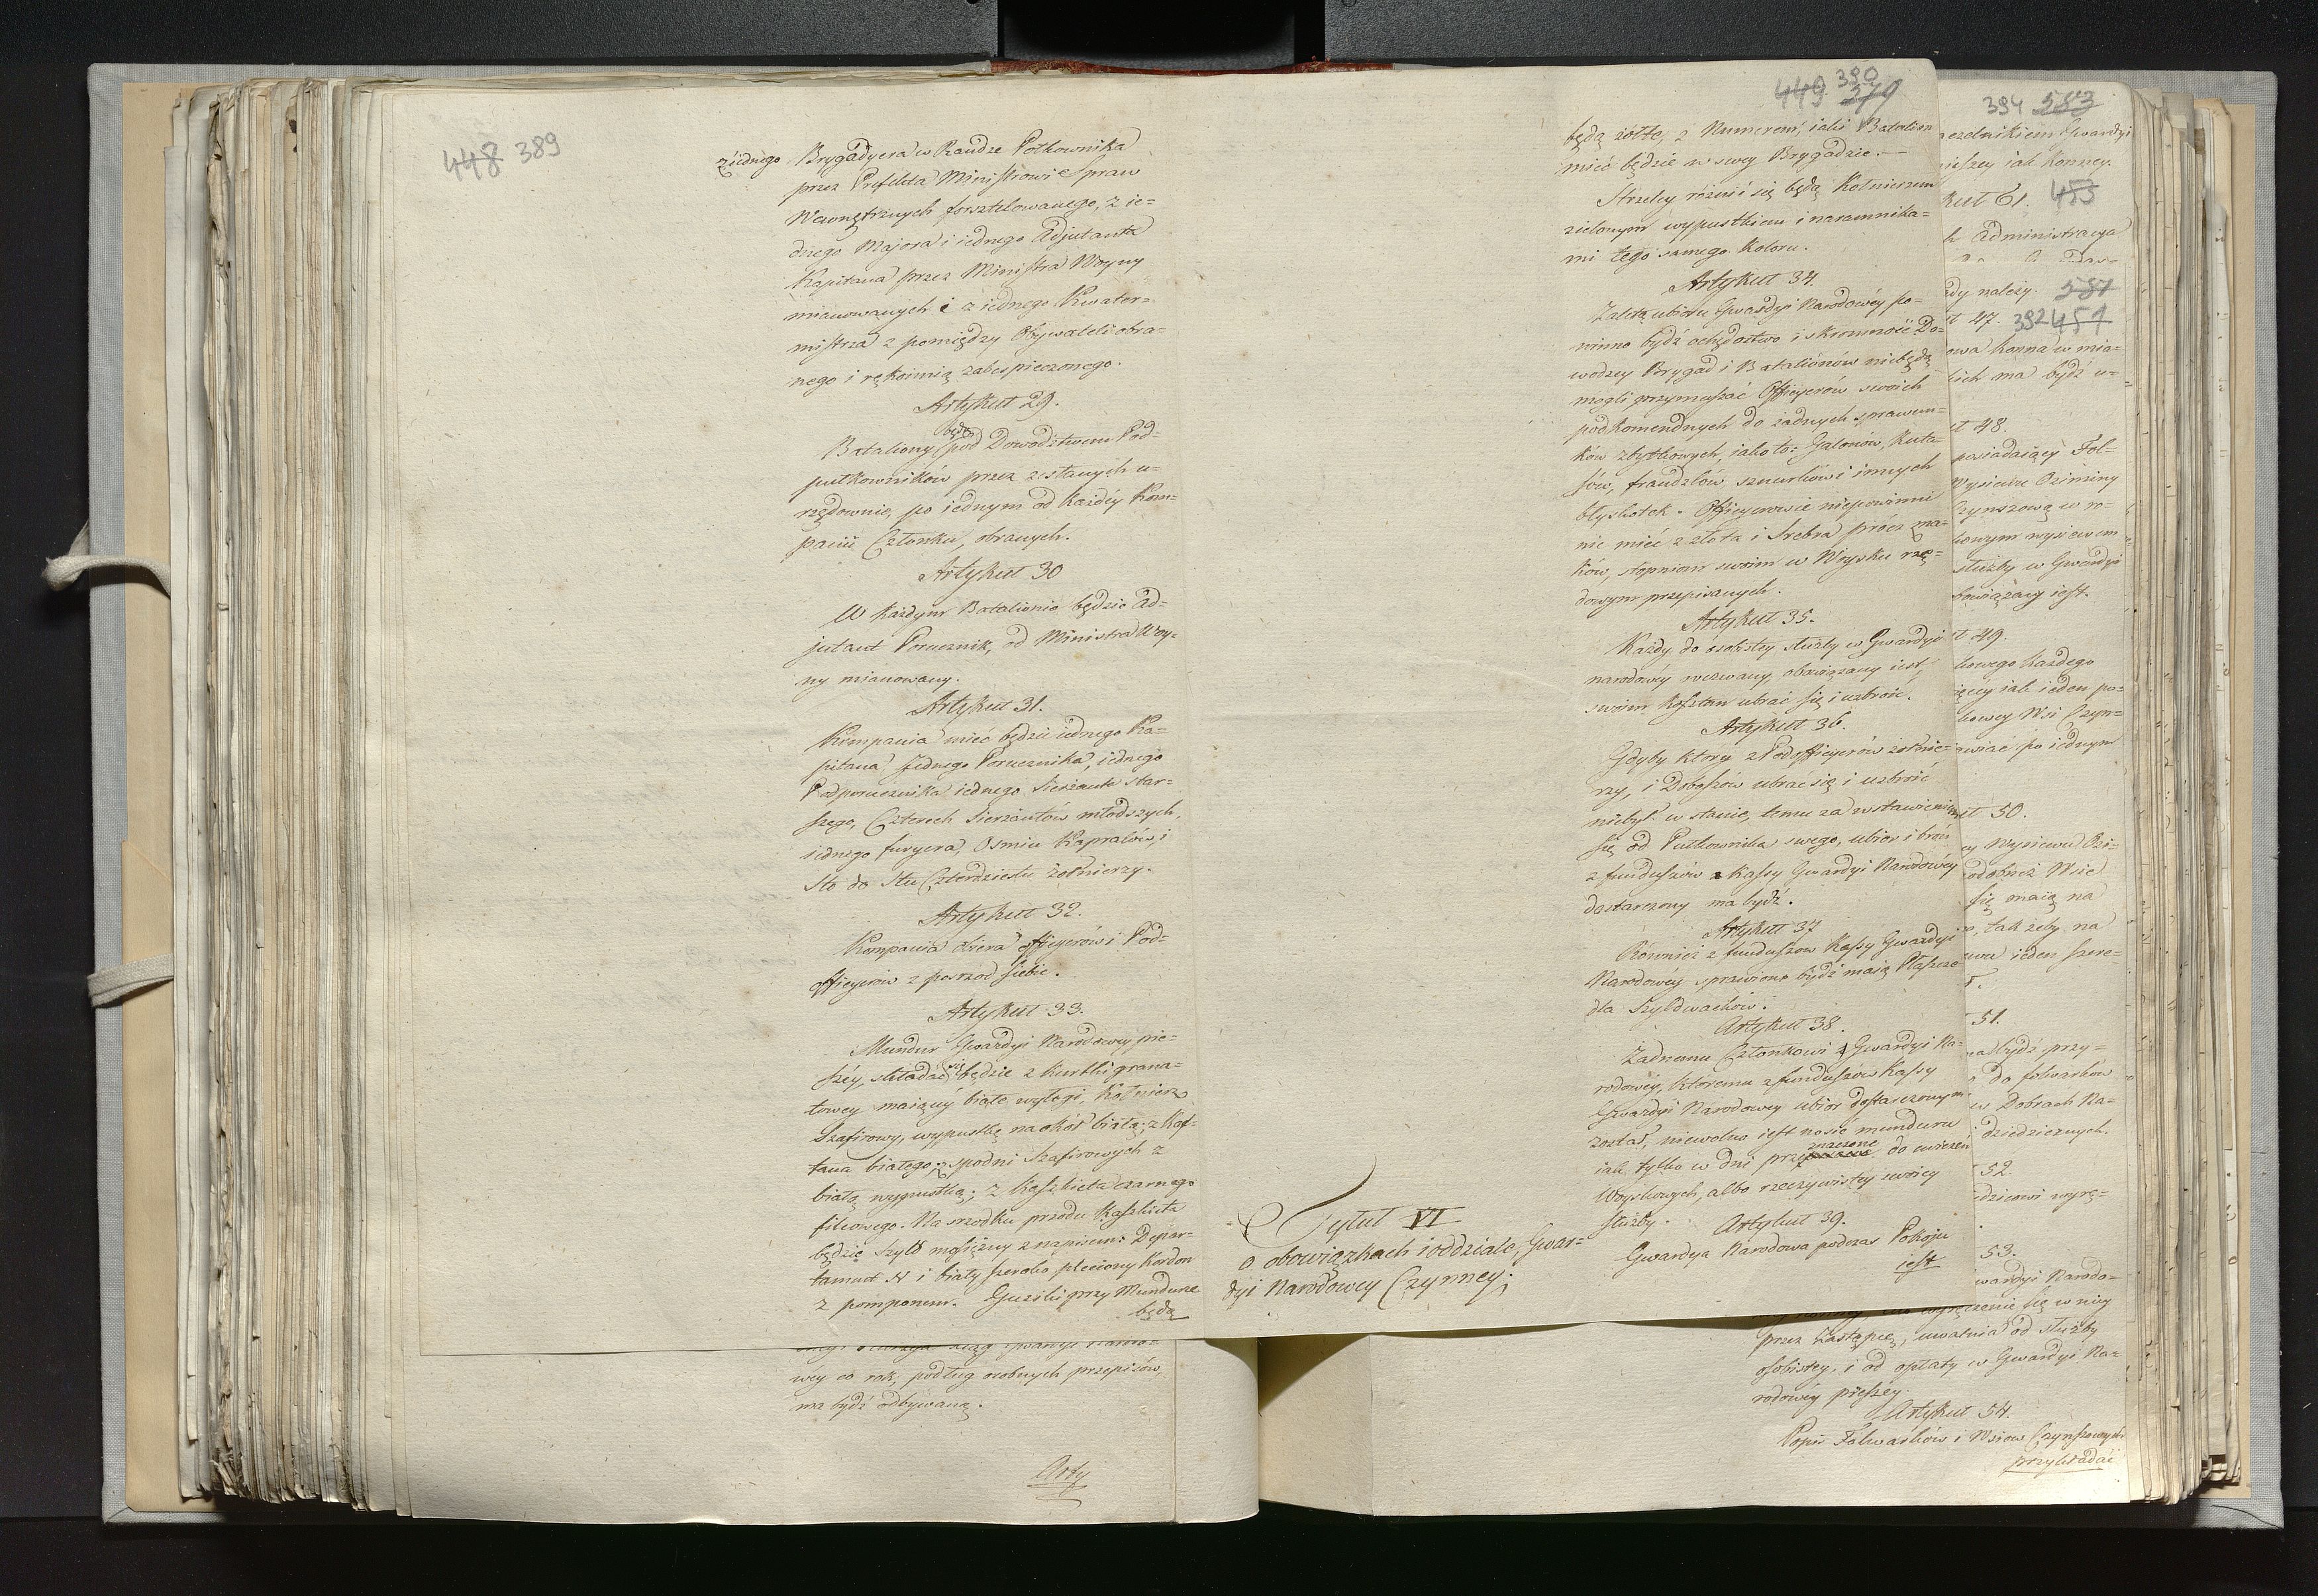 448 389
z iednego Brygadyera w Randze Półkownika
przez Prefekta Ministrowi Spraw
Wewnętrznych forsztelowanego, z ie=
dnego Majora i iednego Adjutanta
Kapitana przez Ministra Woyny
mianowanych i z iednego Kwater=
mistrza z pomiędzy Obywateli obra=
nego i rękoimią zabespieczonego.
Artykuł 29.
będą
Bataliony pod Dowodztwem Pod=
pułkowników przez zesłanych u=
rzędownie, po iednym od każdéy Kom=
panii Członku, obranych.
Artykuł 30
W każdym Batalionie będzie Ad=
jutant Porucznik, od Ministra Woy=
ny mianowany.
Artykuł 31.
Kompania mieć będzie iednego Ka=
pitana Jednego Porucznika, iednego
Podporucznika iednego Sierżanta star=
szego, Czterech Sierżantów młodszych,
iednego furyera, Osmiu Kapralów, i
Sto do Stu Czterdziestu żołnierzy.
Artykuł 32.
Kompania obiera officyerów i Pod=
officyerów z posrzod siebie.
Artykuł 33.
Mundur Gwardyi Narodowey pie=
széy, składać się będzie z Kurtki grana=
towey maiącey białe wyłogi, Kołnierz
Szafirowy, wypustkę na okół białą; z Kaf=
tana białego; z spodni Szafirowych z
białą wypustką; z Kaszkieta czarnego
filcowego. Na srzodku przodu Kaszkieta
będzie Szyld mosiężny z napisem: Depar=
tament N i biały szeroko pleciony Kordon
z pomponem. Guziki przy Mundurze
będą
wéy co rok, podług osobnych przepisów,
ma bydź odbywaną.
Arty
449 390 379
będą żółte, z Numerem, iaki Batalion
mieć będzie w swey Brygadzie.—
Strzelcy różnić się będą Kołnierzem
zielonym wypustkiem i naramnika=
mi tego samego koloru.
Artykuł 34.
Zaletą ubioru Gwardyi Narodowéy po=
winno bydź ochędostwo i skromność Do=
wodzcy Brygad i Batalionów nie będą
mogli przymuszać Officyerów swoich
podkomendnych do żadnych sprawun=
ków zbytkowych, iako to: Galonów, Kuta=
sów, frandzlów, sznurków i innych
błyskotek. Officyerowie niepowinni
nic mieć z złota i srebra prócz zna=
ków, stopniom swoim w Woysku rzę=
dowym przepisanych.
Artykuł 35.
Każdy do osobistey służby w Gwardyi
narodowéy wezwany, obowiązany iest,
swoim kosztem ubrać się i uzbroić.
Artykuł 36.
Gdyby który z Podofficyerów żołnie=
rzy, i Doboszów ubrać się i uzbroić
niebył w stanie, temu za wstawieniem
się od Pułkownika swego, ubior i broń
z funduszów z Kassy Gwardyi Narodowéy
dostarczony ma bydź.
Artykuł 37
Również z funduszów Kassy Gwardyi
Narodowéy sprawione bydź maią Płaszcze
dla Szyldwachów.
Artykuł 38.
Żadnemu Członkowi Gwardyi Na=
rodowéy, któremu z funduszów Kassy
Gwardyi Narodowey ubior dostarczonym
został, niewolno iest nosić munduru
znaczone
iak tylko w dni prze do cwiczeń
Woyskowych, albo rzeczywistey swoiey
służby.
Artykuł 39.
Tytuł VI
o obowiązkach i oddziale, Gwar=
dyi Narodowey Czynney;
Gwardya Narodowa podczas Pokoju
iest
394 583
Gwardyi
iak konney.
kuł 61. 453
Administracya
należy. 581
ł 47. 392 451
konna w mia=
ich ma bydź u=
ł 48.
posiadaiący Fol=
Wysiewu Oziminy
Czynszową w ro=
kowym wysiewem
służby w Gwardyi
bowiązany iest.
ł 49.
kowego każdego
ięcéy iak ieden po=
kowey Wsi Czyn=
awiać po iednym
ł 50.
Wysiewu Ozi=
się maią na
tak żeby na
ieden szere=
51.
bydź przy=
do folwarków
w Dobrach Na=
dziedzicznych.
52.
53.
wardyi Narodo=
się w niey
przez Zastąpcę, uwalnia od służby
osobistey, i od opłaty w Gwardyi Na=
rodowéy pieszéy.
Artykuł 54.
Popis Folwarków i Wsiow Czynszowych
przykładać